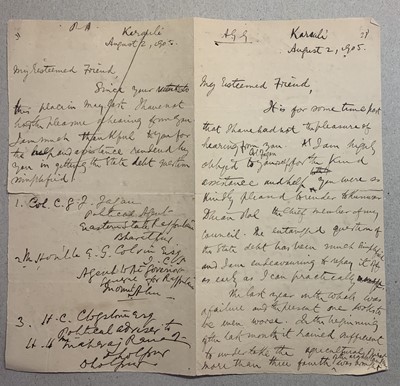 P A
Karauli
August 2, 1905.
My Esteemed Friend,
Since your
this place in May last I have not
had the pleasure of hearing from you
I am much thankful to you for
the help and assistance rendered by
you in getting the State debt question
simplified
1. Col. C. G. F. Fagan
Political Agent
Eastern States Rajputana
Bharatpur
2. The Hon'ble E. G. Colvin Esq
I.C.S
Agent to the Governor
General for Rajputana
Mount Abu
3. H. C. Clogstoun Esq
Political adviser to
H. H. Maharaj Rana of
Dholpur
Dholpur
A G G
Karauli
August 2, 1905.
My Esteemed Friend,
It is for some time past
that I have had not the pleasure of
hearing from you. I am highly
oblig'd to you for the kind
assistance and help you were so
kindly pleased to render to
the chief member of my
Council. The entangled question of
the State debt has been much simplified
and I am endeavouring to repay it off
as early as I can practicably
The last year on the whole was
a failure and the present one looks to
be even worse. In the beginning
of the last month it rained sufficient
to undertake the agricultural
more than three fourth was